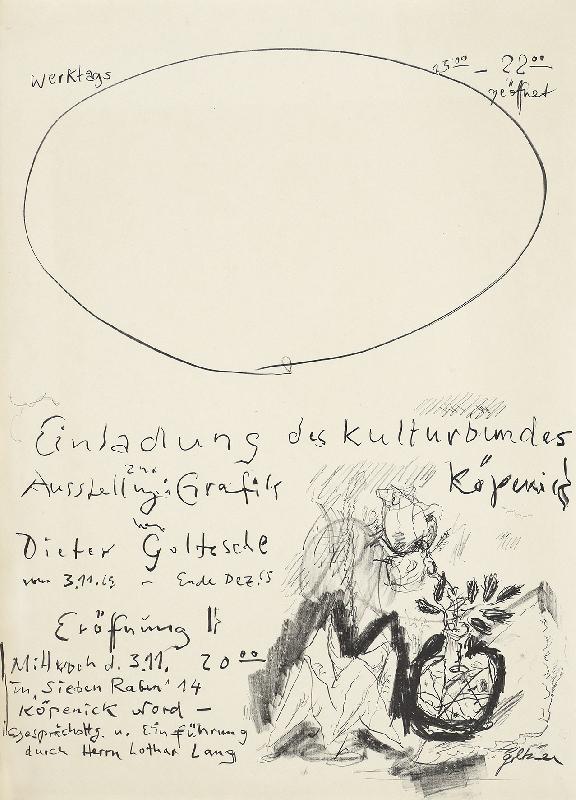 werktags 15⁰⁰ – 22⁰⁰
geöffnet
Einladung des Kulturbundes
Köpenick
zur
Ausstellung: Grafik
von
Dieter Goltzsche
vom 3.11.65 – Ende Dez. 65
Eröffnung
Mittwoch d. 3.11. 20⁰⁰
in „Sieben Raben“ 14
Köpenick Nord –
u. Einführung
durch Herrn Lothar Lang